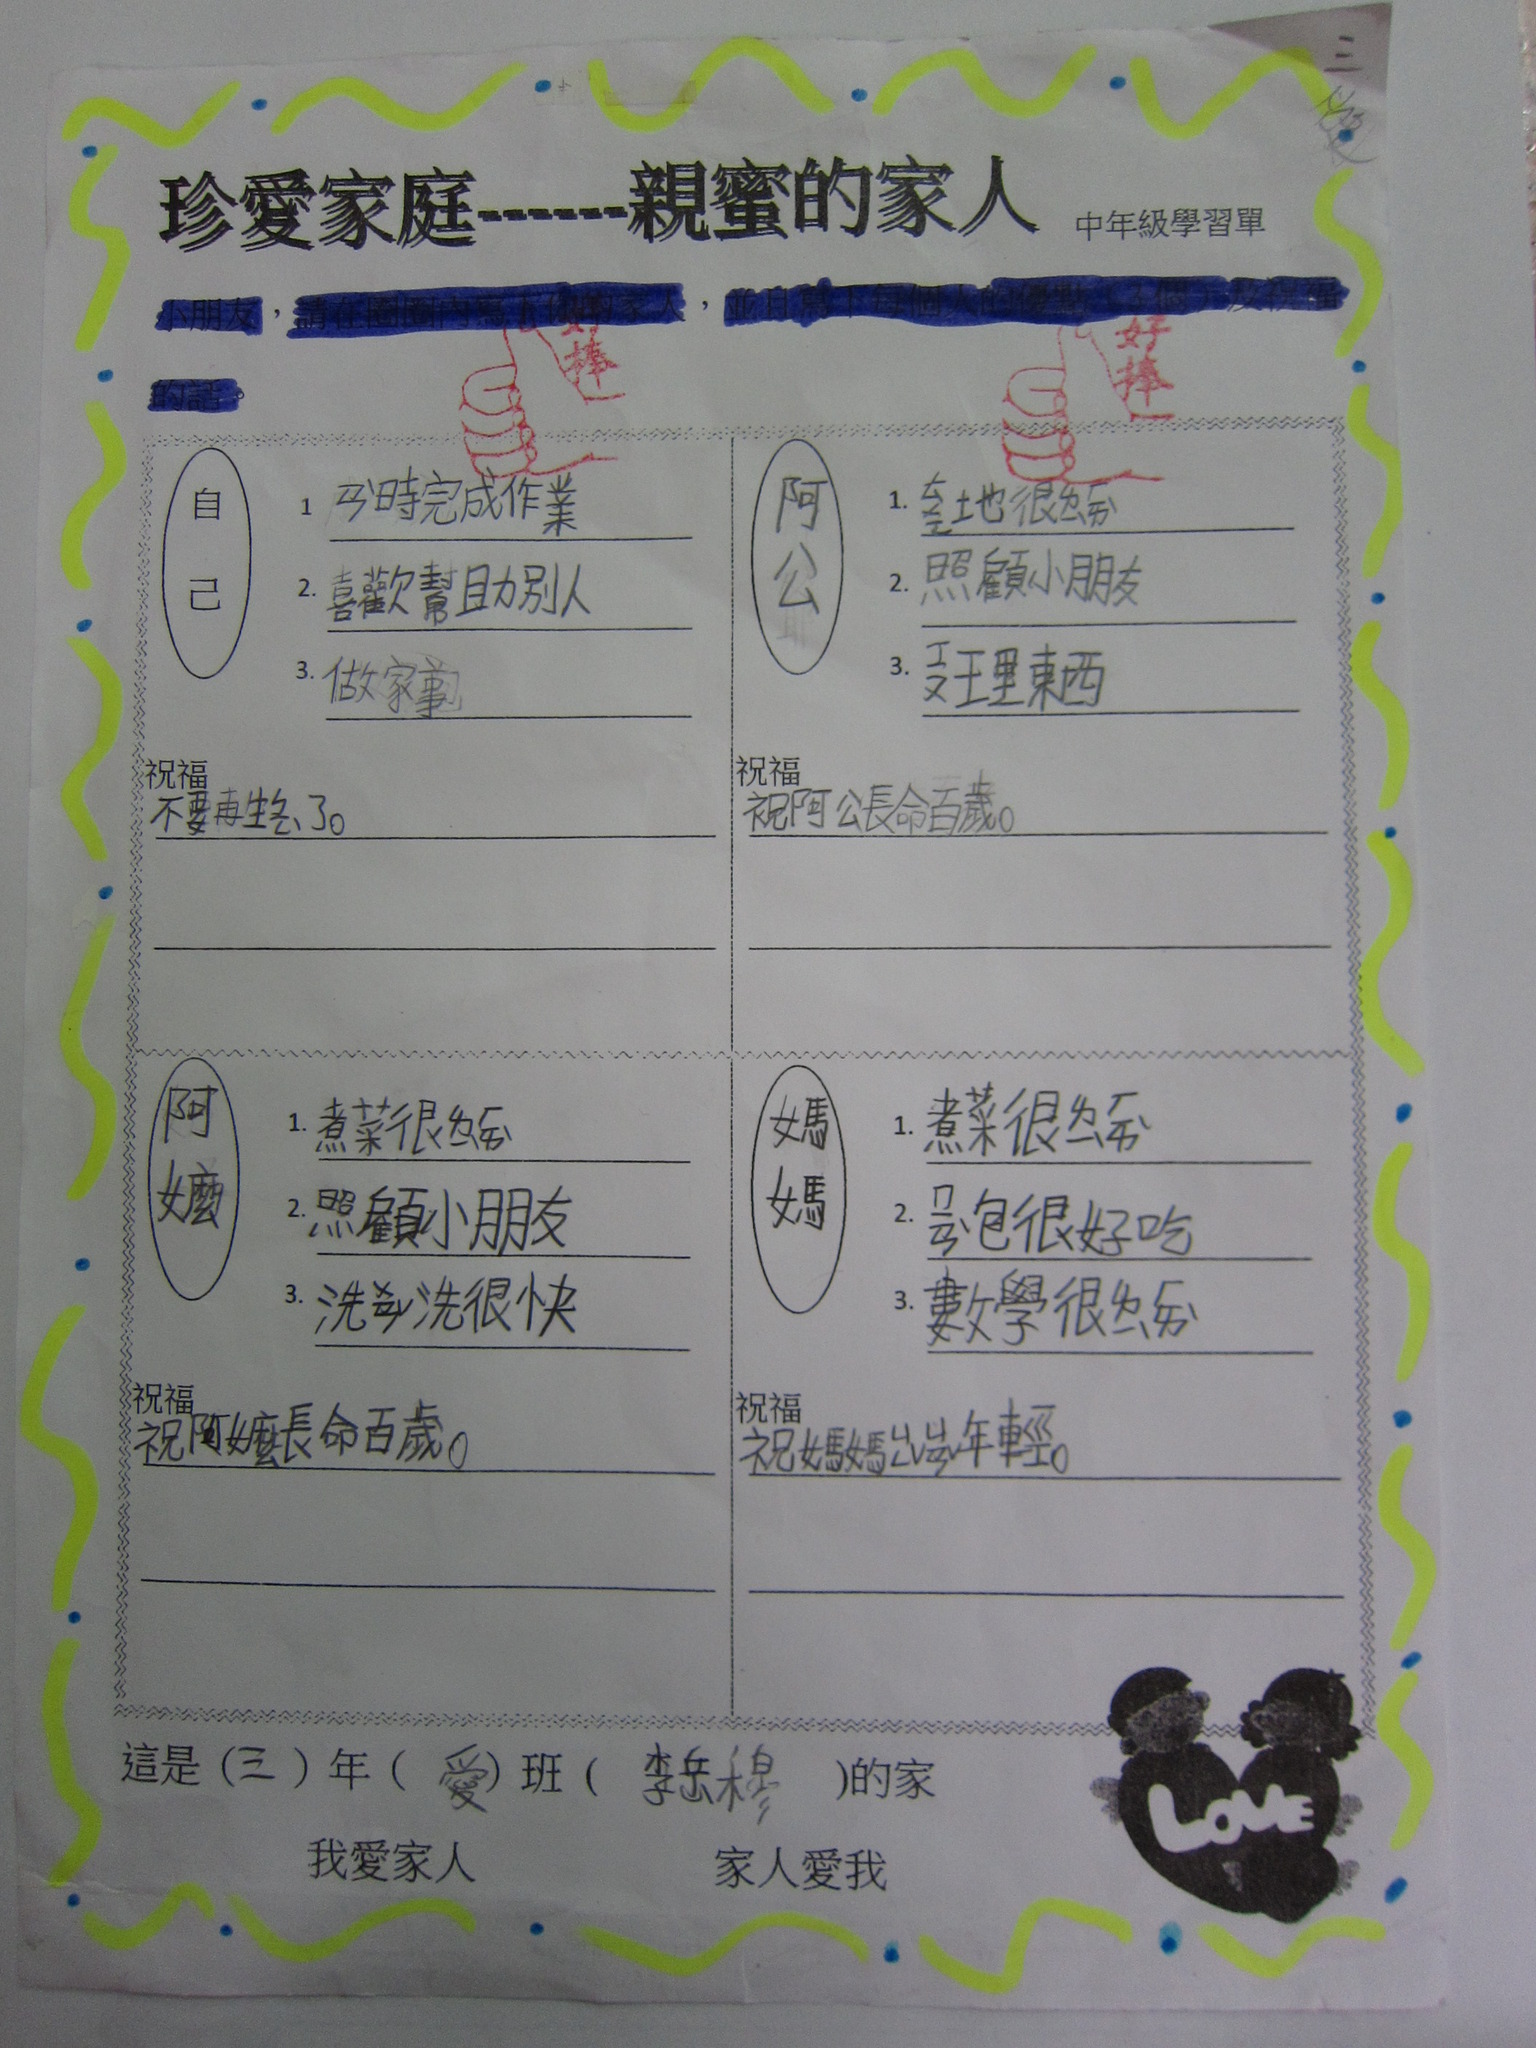 三
愛
珍愛家庭------親蜜的家人 中年級學習單
小朋友，請在圈圈內寫下你的家人，並且寫下每個人的優點（3個）及祝福
的話。
好棒
好棒
自己
1 ㄢˋ時完成作業
2. 喜歡幫助別人
3. 做家事
祝福
不要再生ㄑㄧˋ了。
阿公
1. 地很ㄌㄧˋ
2. 照顧小朋友
3. 理東西
祝福
祝阿公長命百歲。
阿嬤
1. 煮菜很
2. 照顧小朋友
3. 洗 洗很快
祝福
祝阿嬤長命百歲。
媽媽
1. 煮菜很
2. 包很好吃
3. 數學很
祝福
祝媽媽 年輕。
這是（三）年（愛）班（李岳穆）的家
我愛家人 家人愛我
LOVE